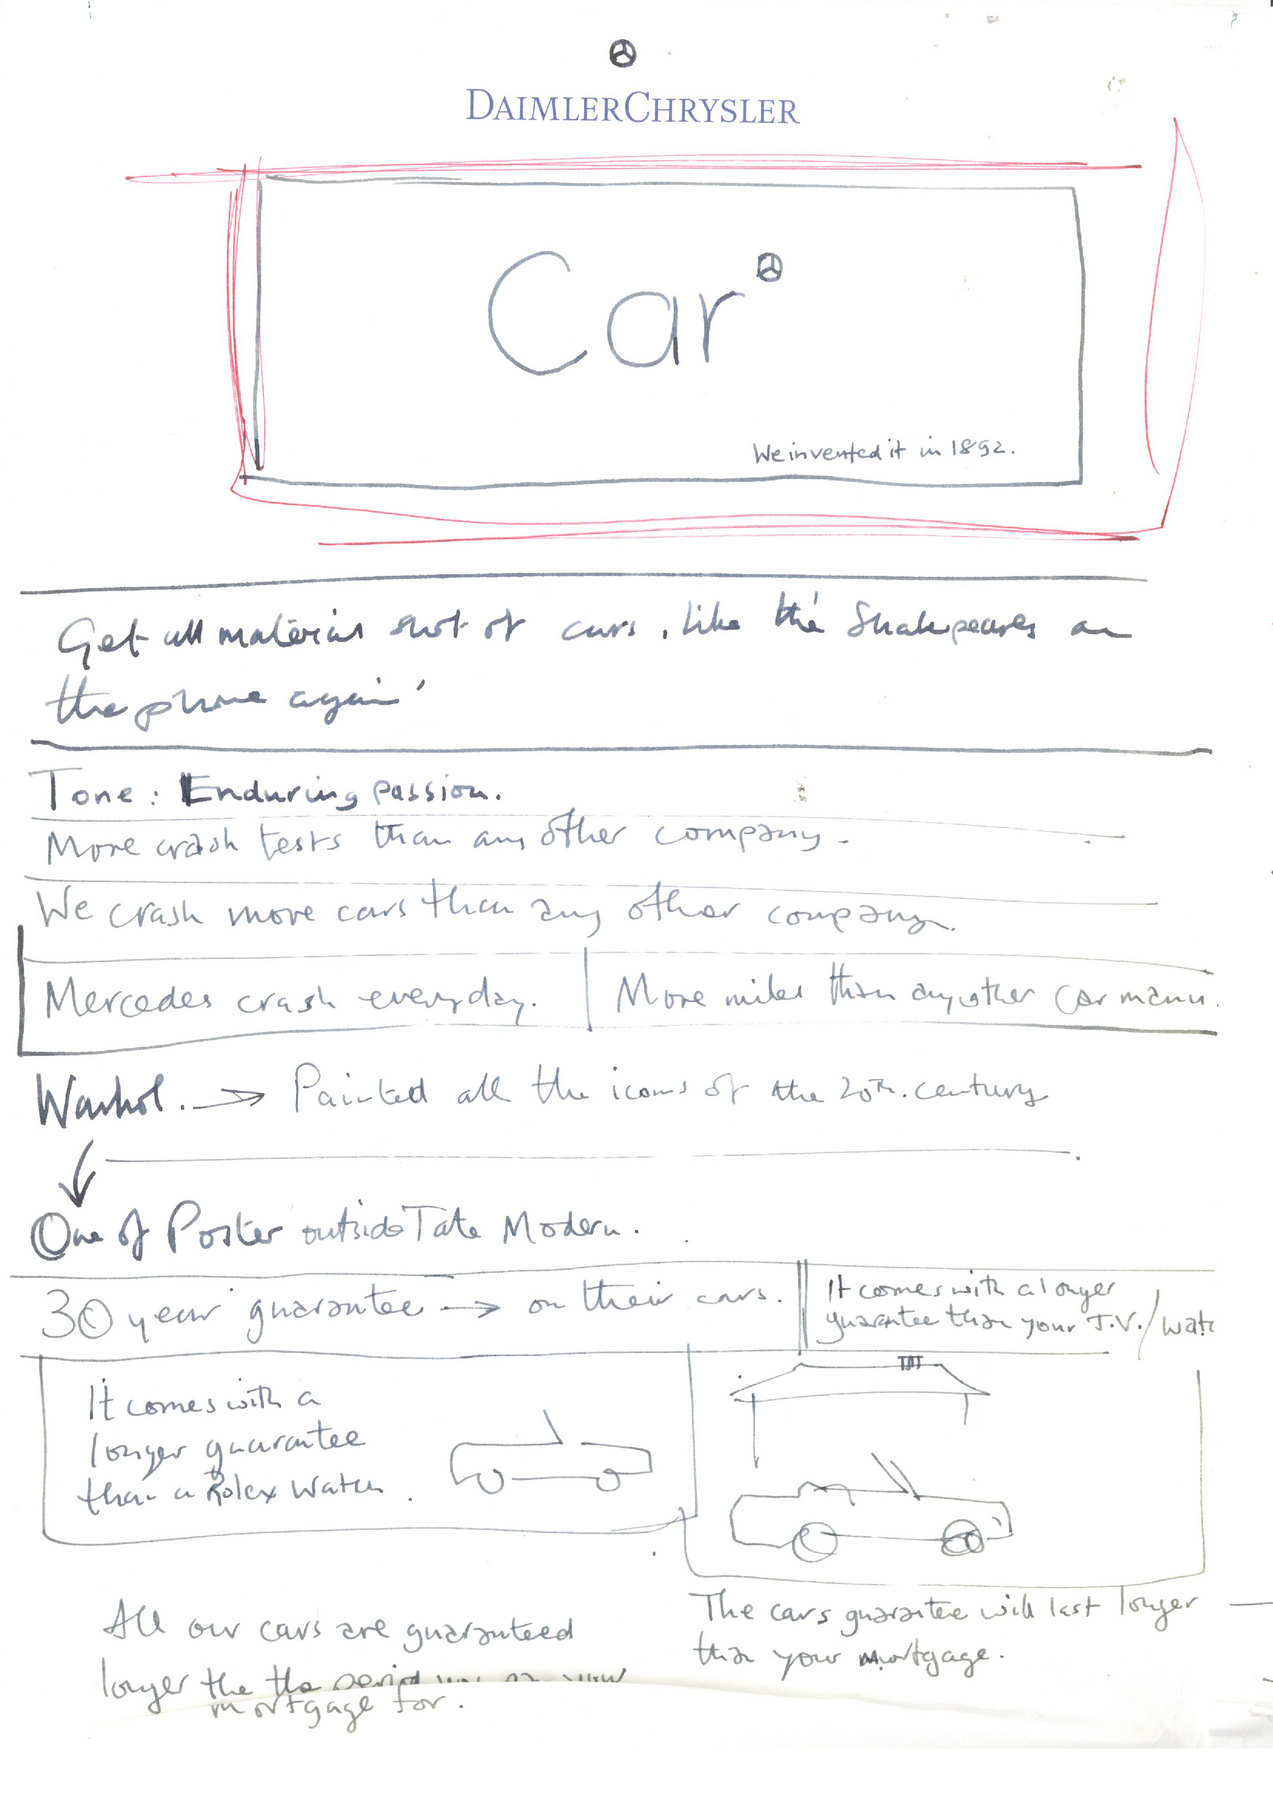 DAIMLERCHRYSLER
Car
We invented it in 1892.
Get all material shot of cars, like 'the Shakespeares on
the phone again'
Tone: Enduring passion.
More crash tests than any other company.
We crash more cars than any other company.
Mercedes crash everyday.
More miles than any other car manu.
Warhol. → Painted all the icons of the 20th. century
One of Poster outside Tate Modern.
30 year guarantee → on their cars.
It comes with a longer
guarantee than your T.V./watc
It comes with a
longer guarantee
than a Rolex Watch.
TAT
All our cars are guaranteed
longer the the period your
mortgage for.
The cars guarantee will last longer
than your mortgage.